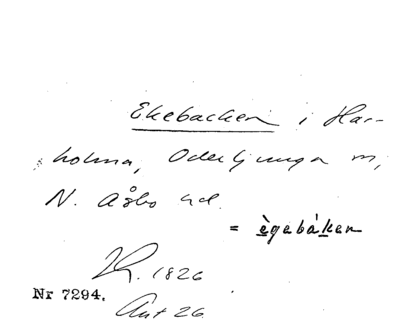 Ekebacken i Har-
holma, Oderljunga sn,
N. Åsbo hd.
= ègebáken
1826
Nr 7294.
Ant 26